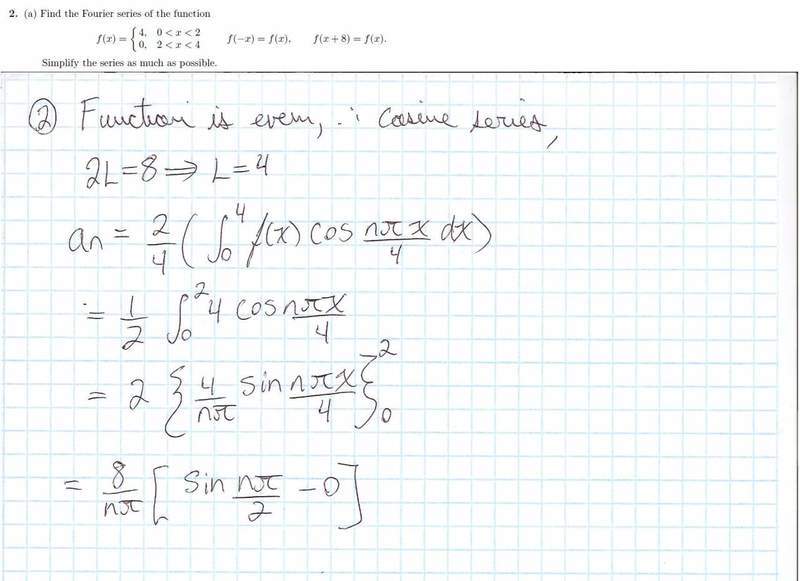 2. (a) Find the Fourier series of the function
f(x) = { 4, 0 < x < 2
0, 2 < x < 4 f(−x) = f(x), f(x + 8) = f(x).
Simplify the series as much as possible.
② Function is even, ∴ Cosine series,
2L=8 ⟹ L=4
an = 2/4 ( ∫₀⁴ f(x) cos nπx/4 dx )
= 1/2 ∫₀² 4 cos nπx/4
= 2 { 4/nπ sin nπx/4 }₀²
= 8/nπ [ sin nπ/2 − 0 ]